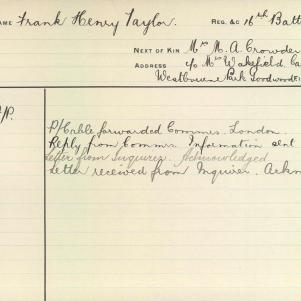 AME Frank Henry Taylor. REG. &C 16th Batt
NEXT OF KIN Mrs M. A. Crowder
ADDRESS c/o Mrs Wakefield, Ca
Westbourne Park, Goodwood
/P.
P/Cable forwarded Commrs. London.
Reply from Commrs. Information sent
Letter from Inquirer. Acknowledged
Letter received from Inquirer. Ackn